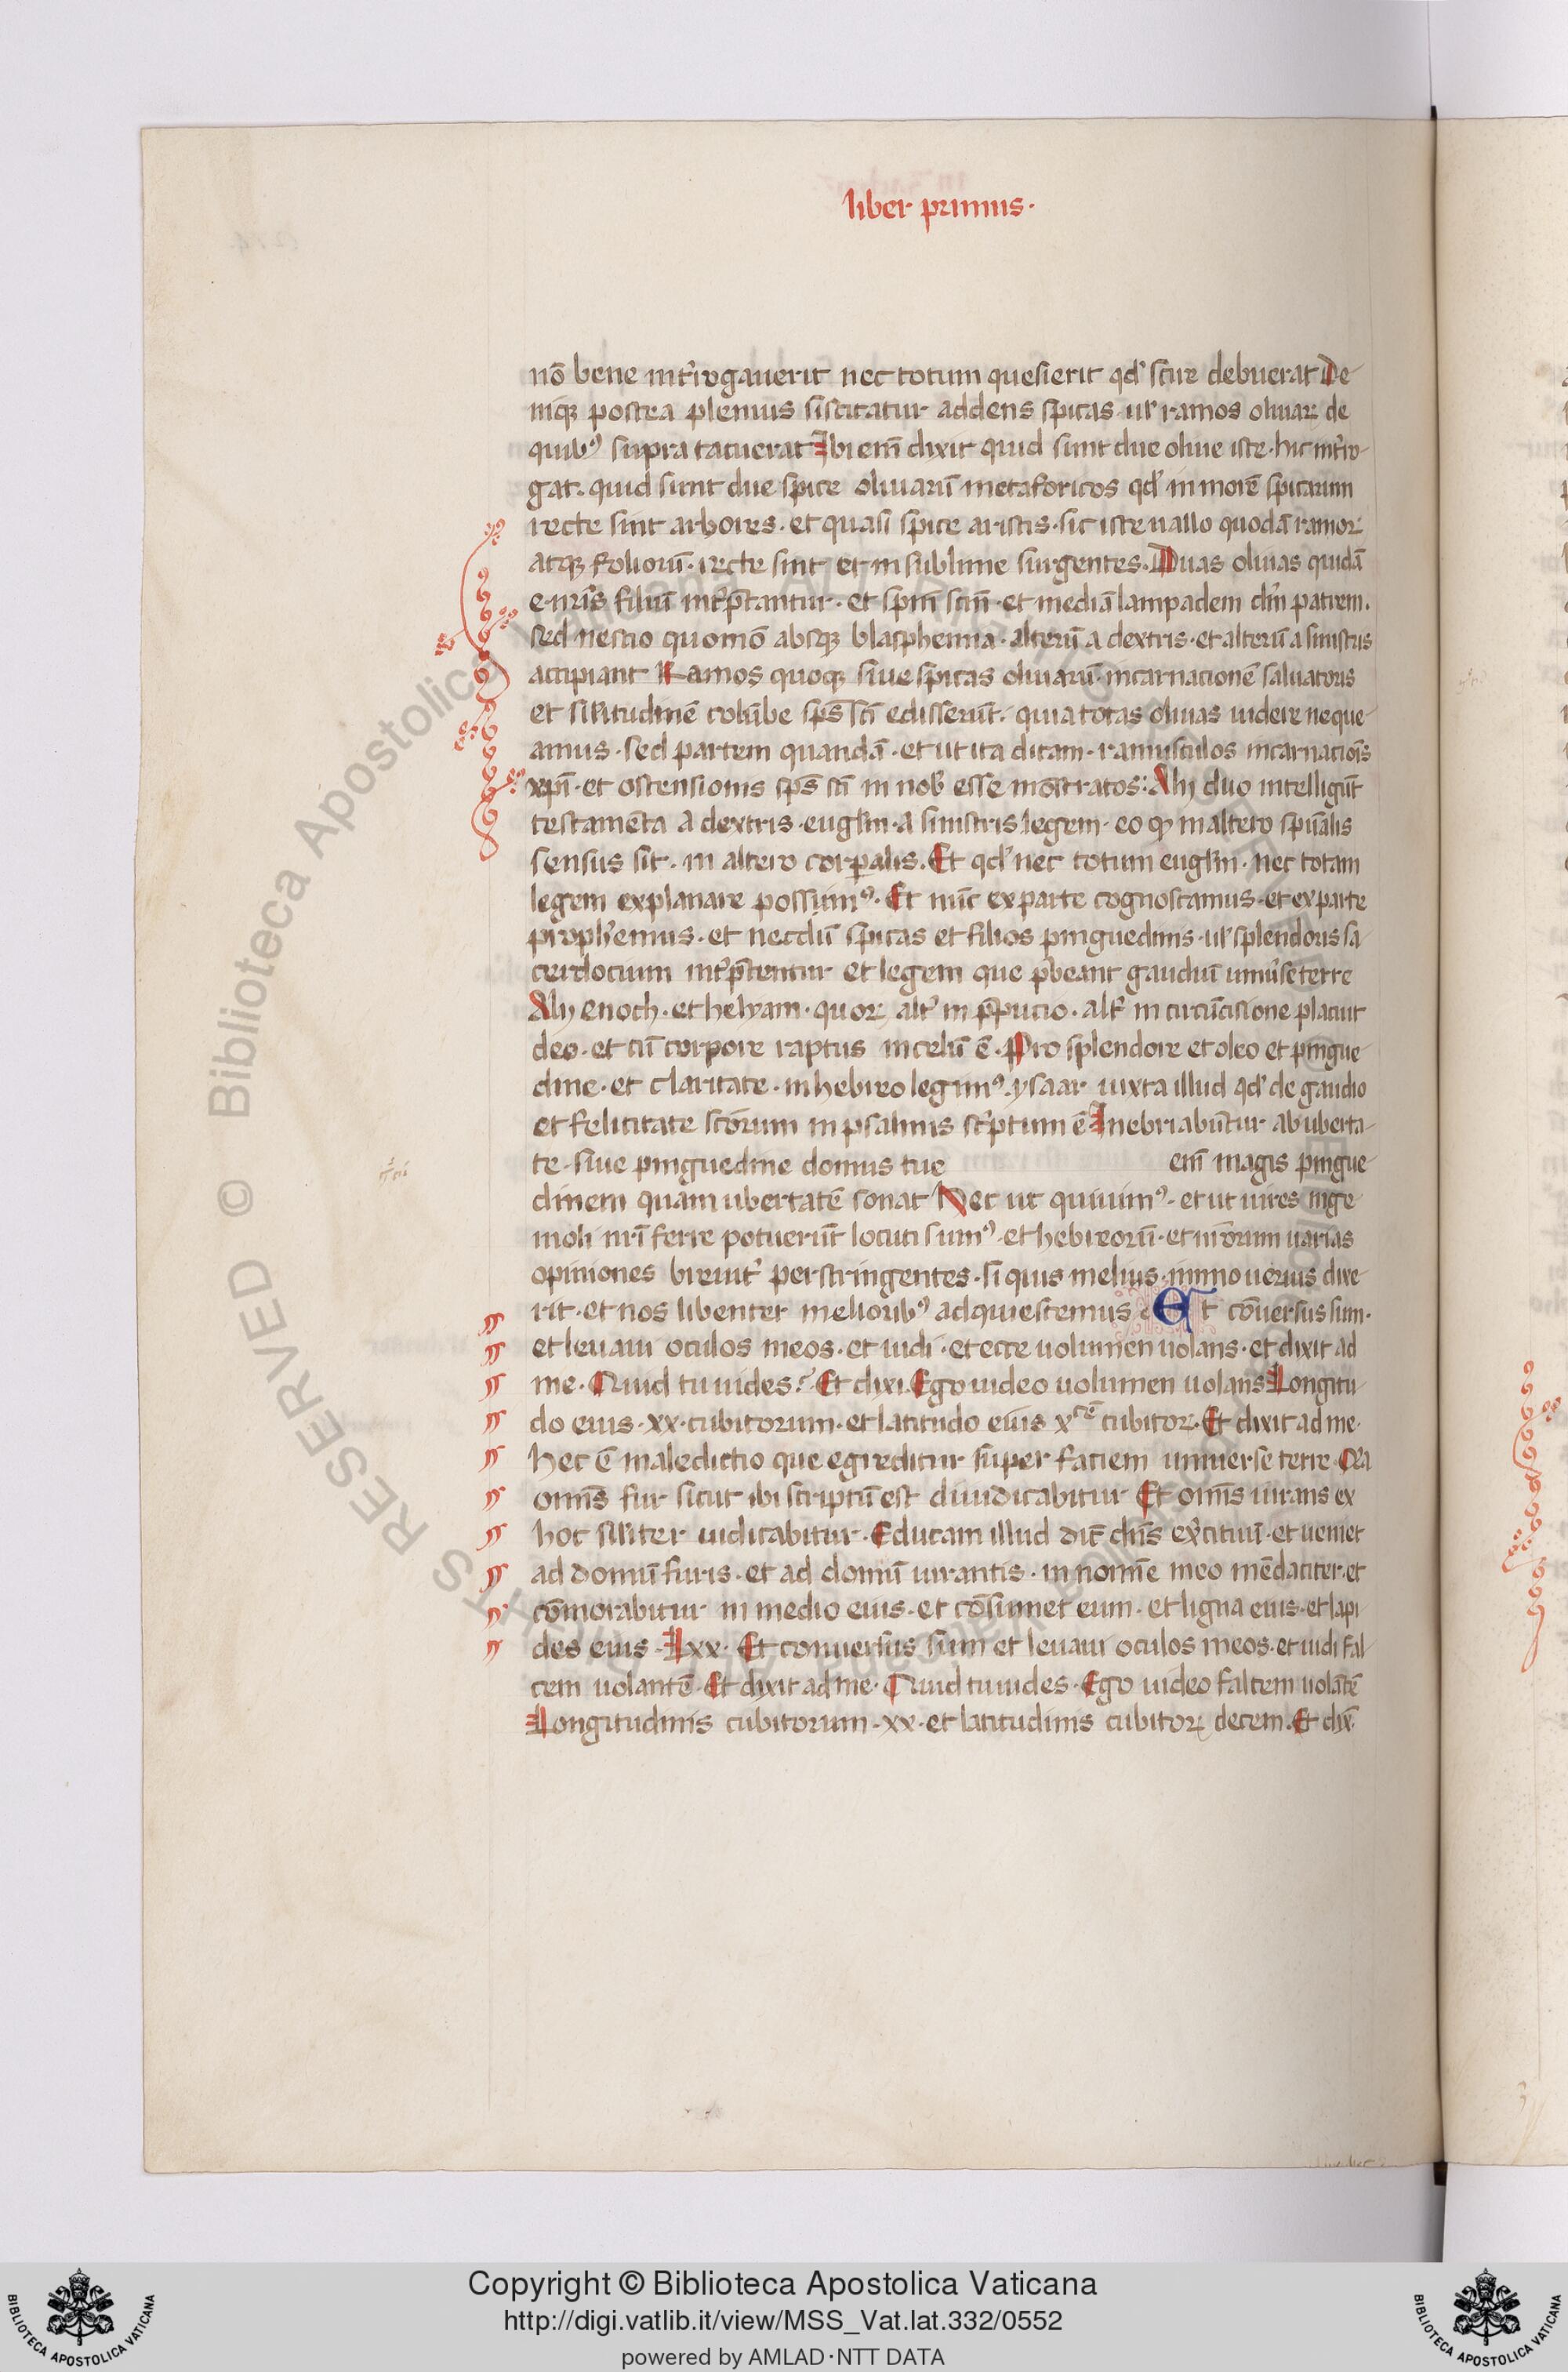 liber primus·
nō bene int̓rogauerit nec totum quesierit qd̓ scire debuerat De
niqꝫ postea plenius sciscitatur addens spicas ul̓ ramos oliuaꝝ de
quibꝰ supra tacuerat Ibi em̄ dixit quid sunt due oliue iste·hic int̓ro
gat·quid sunt due spice oliuarū metaforicos qd̓ in morē spicarum
recte sint arbores·et quasi spice aristis·sic iste uallo quodā ramoꝝ
atqꝫ foliorū·recte sint et in sublime surgentes·Duas oliuas quidā
e·nr̄is filiū int̓p̄tantur·et sp̄m sc̄m·et mediā lampadem dm̄ patrem·
sed nescio quomō absqꝫ blasphemia·alterū a dextris·et alterū a sinistris
accipiant Ramos quoqꝫ siue spicas oliuarū·incarnacionē saluatoris
et sil̓itudinē colūbe sp̄s sc̄i edisserūt·quia totas oliuas uidere neque
amus·sed partem quandā·et ut ita dicam·ramusculos incarnacōis
xp̄i·et ostensionis sp̄s sc̄i in nob̓ esse mōstratos: Alij duo intelligūt
testamēta a dextris·eugl̓m·a sinistris legem·eo ꝙ in altero spūalis
sensus sit·in altero corꝑalis·Et qd̓ nec totum eugl̓m·nec totam
legem explanare possumꝰ·Et nūc ex parte cognoscamus·et ex parte
proph̓emus·et necdū spicas et filios pinguedinis·ul̓ splendoris sa
cerdocium int̓p̄tentur et legem que p̄beant gaudiū uniu̓se terre
Alij enoch·et helyam·quoꝝ alt̓ in p̄pucio·alt̓ in circūcisione placuit
deo·et cū corpore raptus in celū ē·Pro splendore et oleo et pingue
dine·et claritate·in hebreo legimꝰ·ysaar iuxta illud qd̓ de gaudio
et felicitate sc̄orum in psalmis sc̓ptum ē Inebriabūtur ab uberta
te·siue pinguedine domus tue em̄ magis pingue
dinem quam ubertatē sonat Nec ut quiuimꝰ·et ut uires inge
nioli nr̄i ferre potuerūt locuti sumꝰ·et hebreorū·et nr̄orum uarias
opiniones breuit̓ perstringentes·si quis melius·immo uerius dixe
rit·et nos libenter melioribꝰ adquiescemus Et cōuersus sum·
et leuaui oculos meos·et uidi·et ecce uolumen uolans·et dixit ad
me·Quid tu uides? Et dixi·Ego uideo uolumen uolans Longitu
do eius·xx·cubitorum·et latitudo eius x cubitoꝝ·Et dixit ad me·
hec ē maledictio que egreditur super faciem uniuerse terre
om̄s fur sicut ibi scriptū est diiudicabitur Et om̄s iurans ex
hoc sil̓iter iudicabitur·Educam illud dic̄ dn̄s exercituū·et ueniet
ad domū furis·et ad domū iurantis·in nomīe meo mēdaciter·et
cōmorabitur in medio eius·et cōsumet eum·et ligna eius·et lapi
des eius·Lxx·Et conuersus sum et leuaui oculos meos·et uidi fal
cem uolantē·Et dixit ad me·Quid tu uides·Ego uideo falcem uolātē
Longitudinis cubitorum·xx·et latitudinis cubitoꝝ decem·Et dix̄
© Biblioteca Apostolica Vaticana
RIGHTS RESERVED
Copyright © Biblioteca Apostolica Vaticana
http://digi.vatlib.it/view/MSS_Vat.lat.332/0552
powered by AMLAD·NTT DATA
BIBLIOTECA APOSTOLICA VATICANA
BIBLIOTECA APOSTOLICA VATICANA